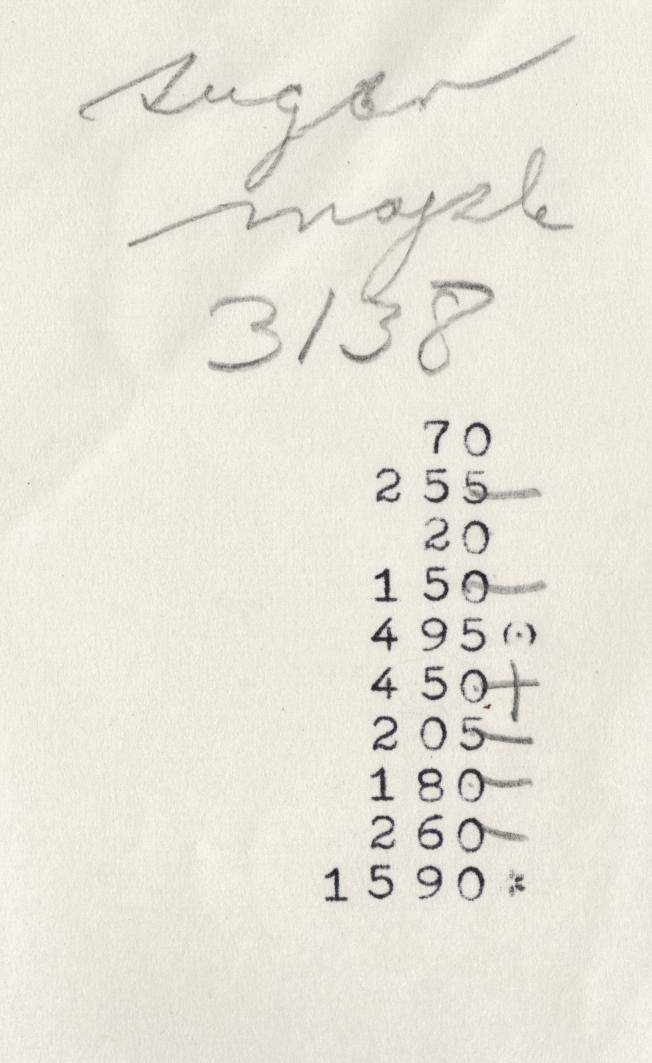 sugar
maple
3138
70
2 55
20
1 50
4 95
4 50
2 05
1 80
2 60
15 90 *